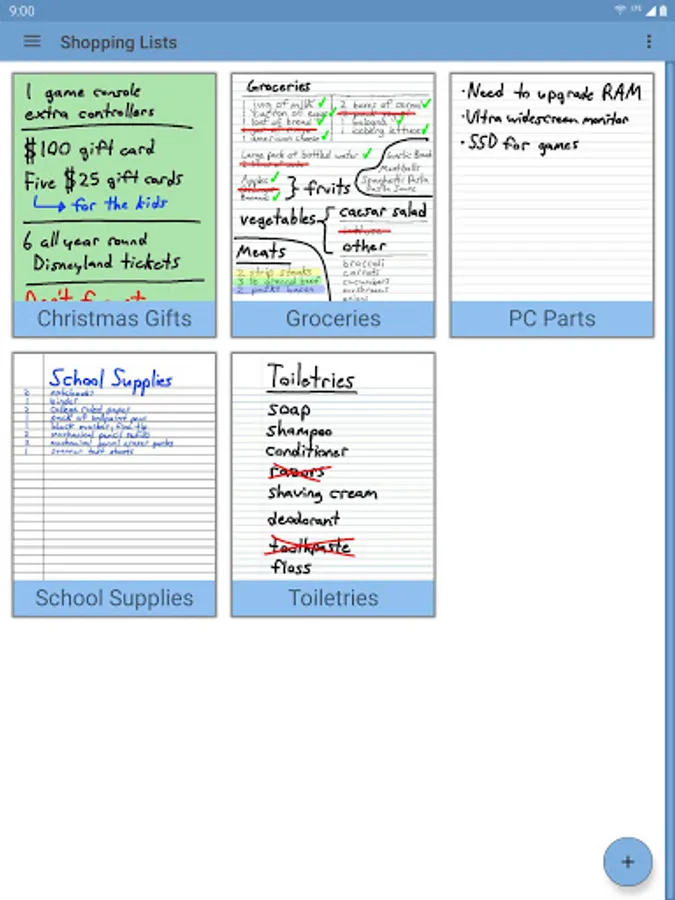 9:00
LTE
Shopping Lists
1 game console
extra controllers
$100 gift card
Five $25 gift cards
for the kids
6 all year round
Disneyland tickets
Don't
Christmas Gifts
Groceries
1 jug of milk
1 carton of eggs
1 loaf of bread
1 american cheese
2 bars of
1 iceberg lettuce
Large pack of bottled water
Garlic Bread
Meatballs
Spaghetti Pasta
Pasta Sauce
Apples
fruits
vegetables
caesar salad
other
broccoli
carrots
cucumbers
mushrooms
Meats
2 strip steaks
3 lb ground beef
2 packs bacon
Groceries
·Need to upgrade RAM
·Ultra widescreen monitor
·SSD for games
PC Parts
School Supplies
2 notebooks
1 binder
2 College ruled paper
1 pack of ballpoint pens
1 black marker, fine tip
2 mechanical pencil refills
3 mechanical pencil eraser packs
1
School Supplies
Toiletries
soap
shampoo
conditioner
razors
shaving cream
deodorant
toothpaste
floss
Toiletries
+